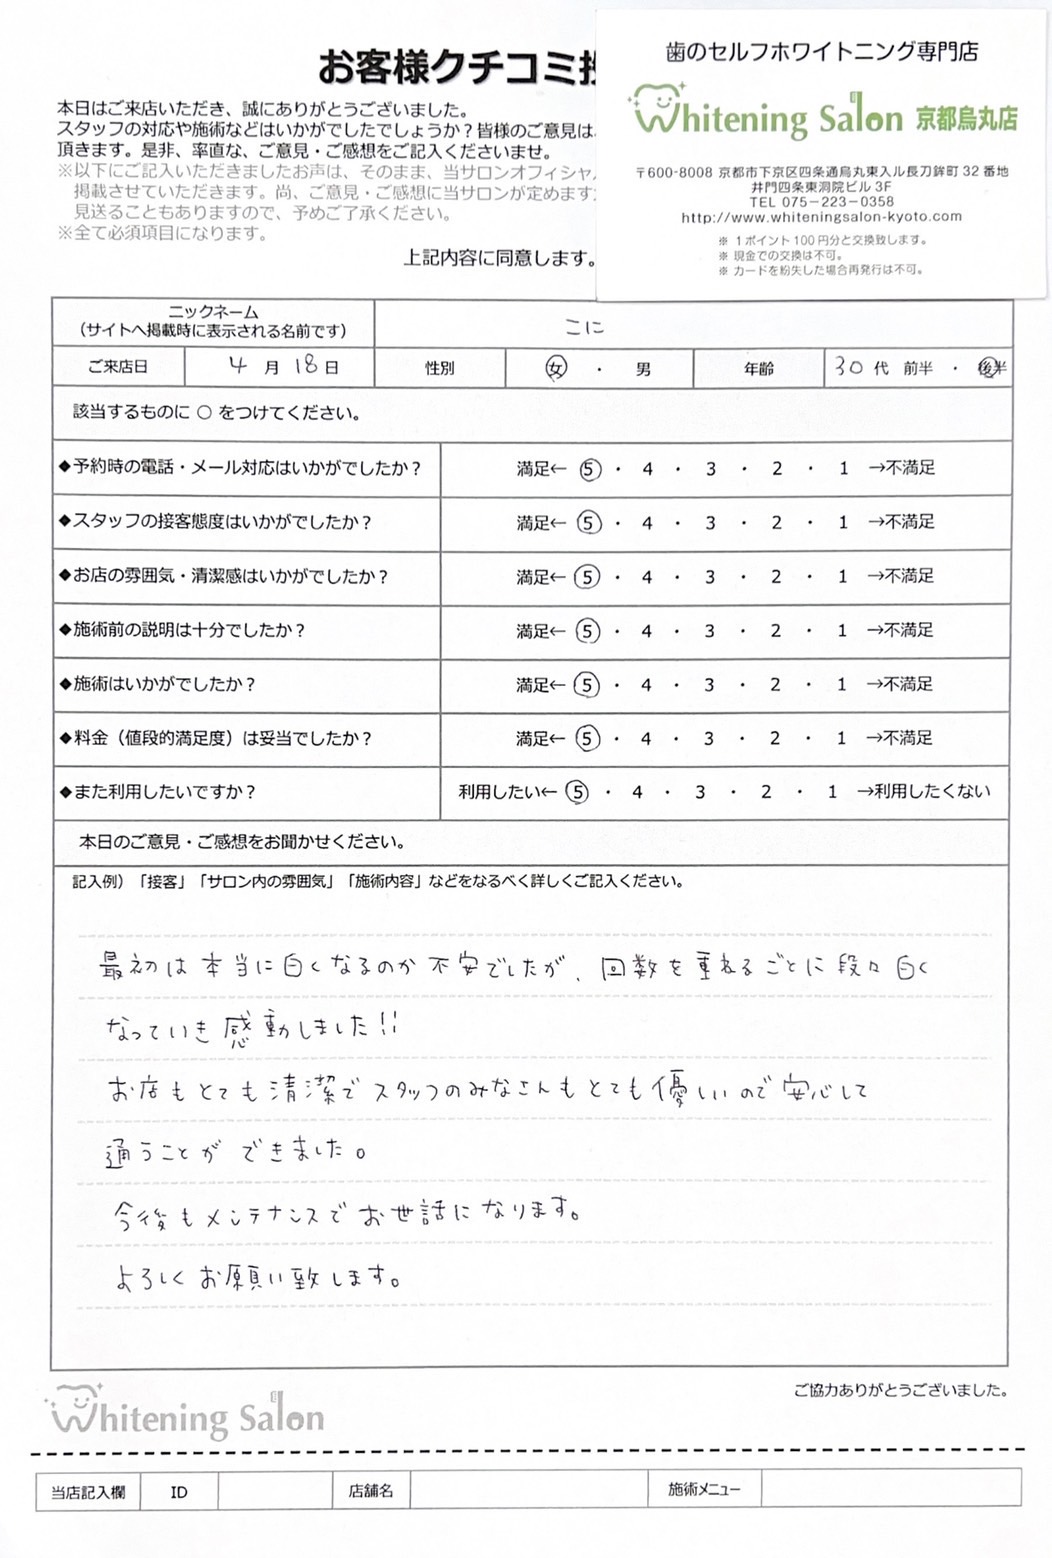 お客様クチコミ
歯のセルフホワイトニング専門店
Whitening Salon 京都烏丸店
〒600-8008 京都市下京区四条通烏丸東入ル長刀鉾町 32 番地
井門四条東洞院ビル 3F
TEL 075-223-0358
http://www.whiteningsalon-kyoto.com
※ 1ポイント 100 円分と交換致します。
※ 現金での交換は不可。
※ カードを紛失した場合再発行は不可。
本日はご来店いただき、誠にありがとうございました。
スタッフの対応や施術などはいかがでしたでしょうか？皆様のご意見は、
頂きます。是非、率直な、ご意見・ご感想をご記入くださいませ。
※以下にご記入いただきましたお声は、そのまま、当サロンオフィシャ
掲載させていただきます。尚、ご意見・ご感想に当サロンが定めます
見送ることもありますので、予めご了承ください。
※全て必須項目になります。
上記内容に同意します。
ニックネーム
（サイトへ掲載時に表示される名前です） こに
ご来店日 4 月 18 日 性別 女 ・ 男 年齢 30 代 前半 ・ 後半
該当するものに ○ をつけてください。
◆予約時の電話・メール対応はいかがでしたか？ 満足← 5 ・ 4 ・ 3 ・ 2 ・ 1 →不満足
◆スタッフの接客態度はいかがでしたか？ 満足← 5 ・ 4 ・ 3 ・ 2 ・ 1 →不満足
◆お店の雰囲気・清潔感はいかがでしたか？ 満足← 5 ・ 4 ・ 3 ・ 2 ・ 1 →不満足
◆施術前の説明は十分でしたか？ 満足← 5 ・ 4 ・ 3 ・ 2 ・ 1 →不満足
◆施術はいかがでしたか？ 満足← 5 ・ 4 ・ 3 ・ 2 ・ 1 →不満足
◆料金（値段的満足度）は妥当でしたか？ 満足← 5 ・ 4 ・ 3 ・ 2 ・ 1 →不満足
◆また利用したいですか？ 利用したい← 5 ・ 4 ・ 3 ・ 2 ・ 1 →利用したくない
本日のご意見・ご感想をお聞かせください。
記入例）「接客」「サロン内の雰囲気」「施術内容」などをなるべく詳しくご記入ください。
最初は本当に白くなるのか不安でしたが、回数を重ねるごとに段々白く
なっていき感動しました!!
お店もとても清潔でスタッフのみなさんもとても優しいので安心して
通うことができました。
今後もメンテナンスでお世話になります。
よろしくお願い致します。
ご協力ありがとうございました。
Whitening Salon
当店記入欄 ID 店舗名 施術メニュー